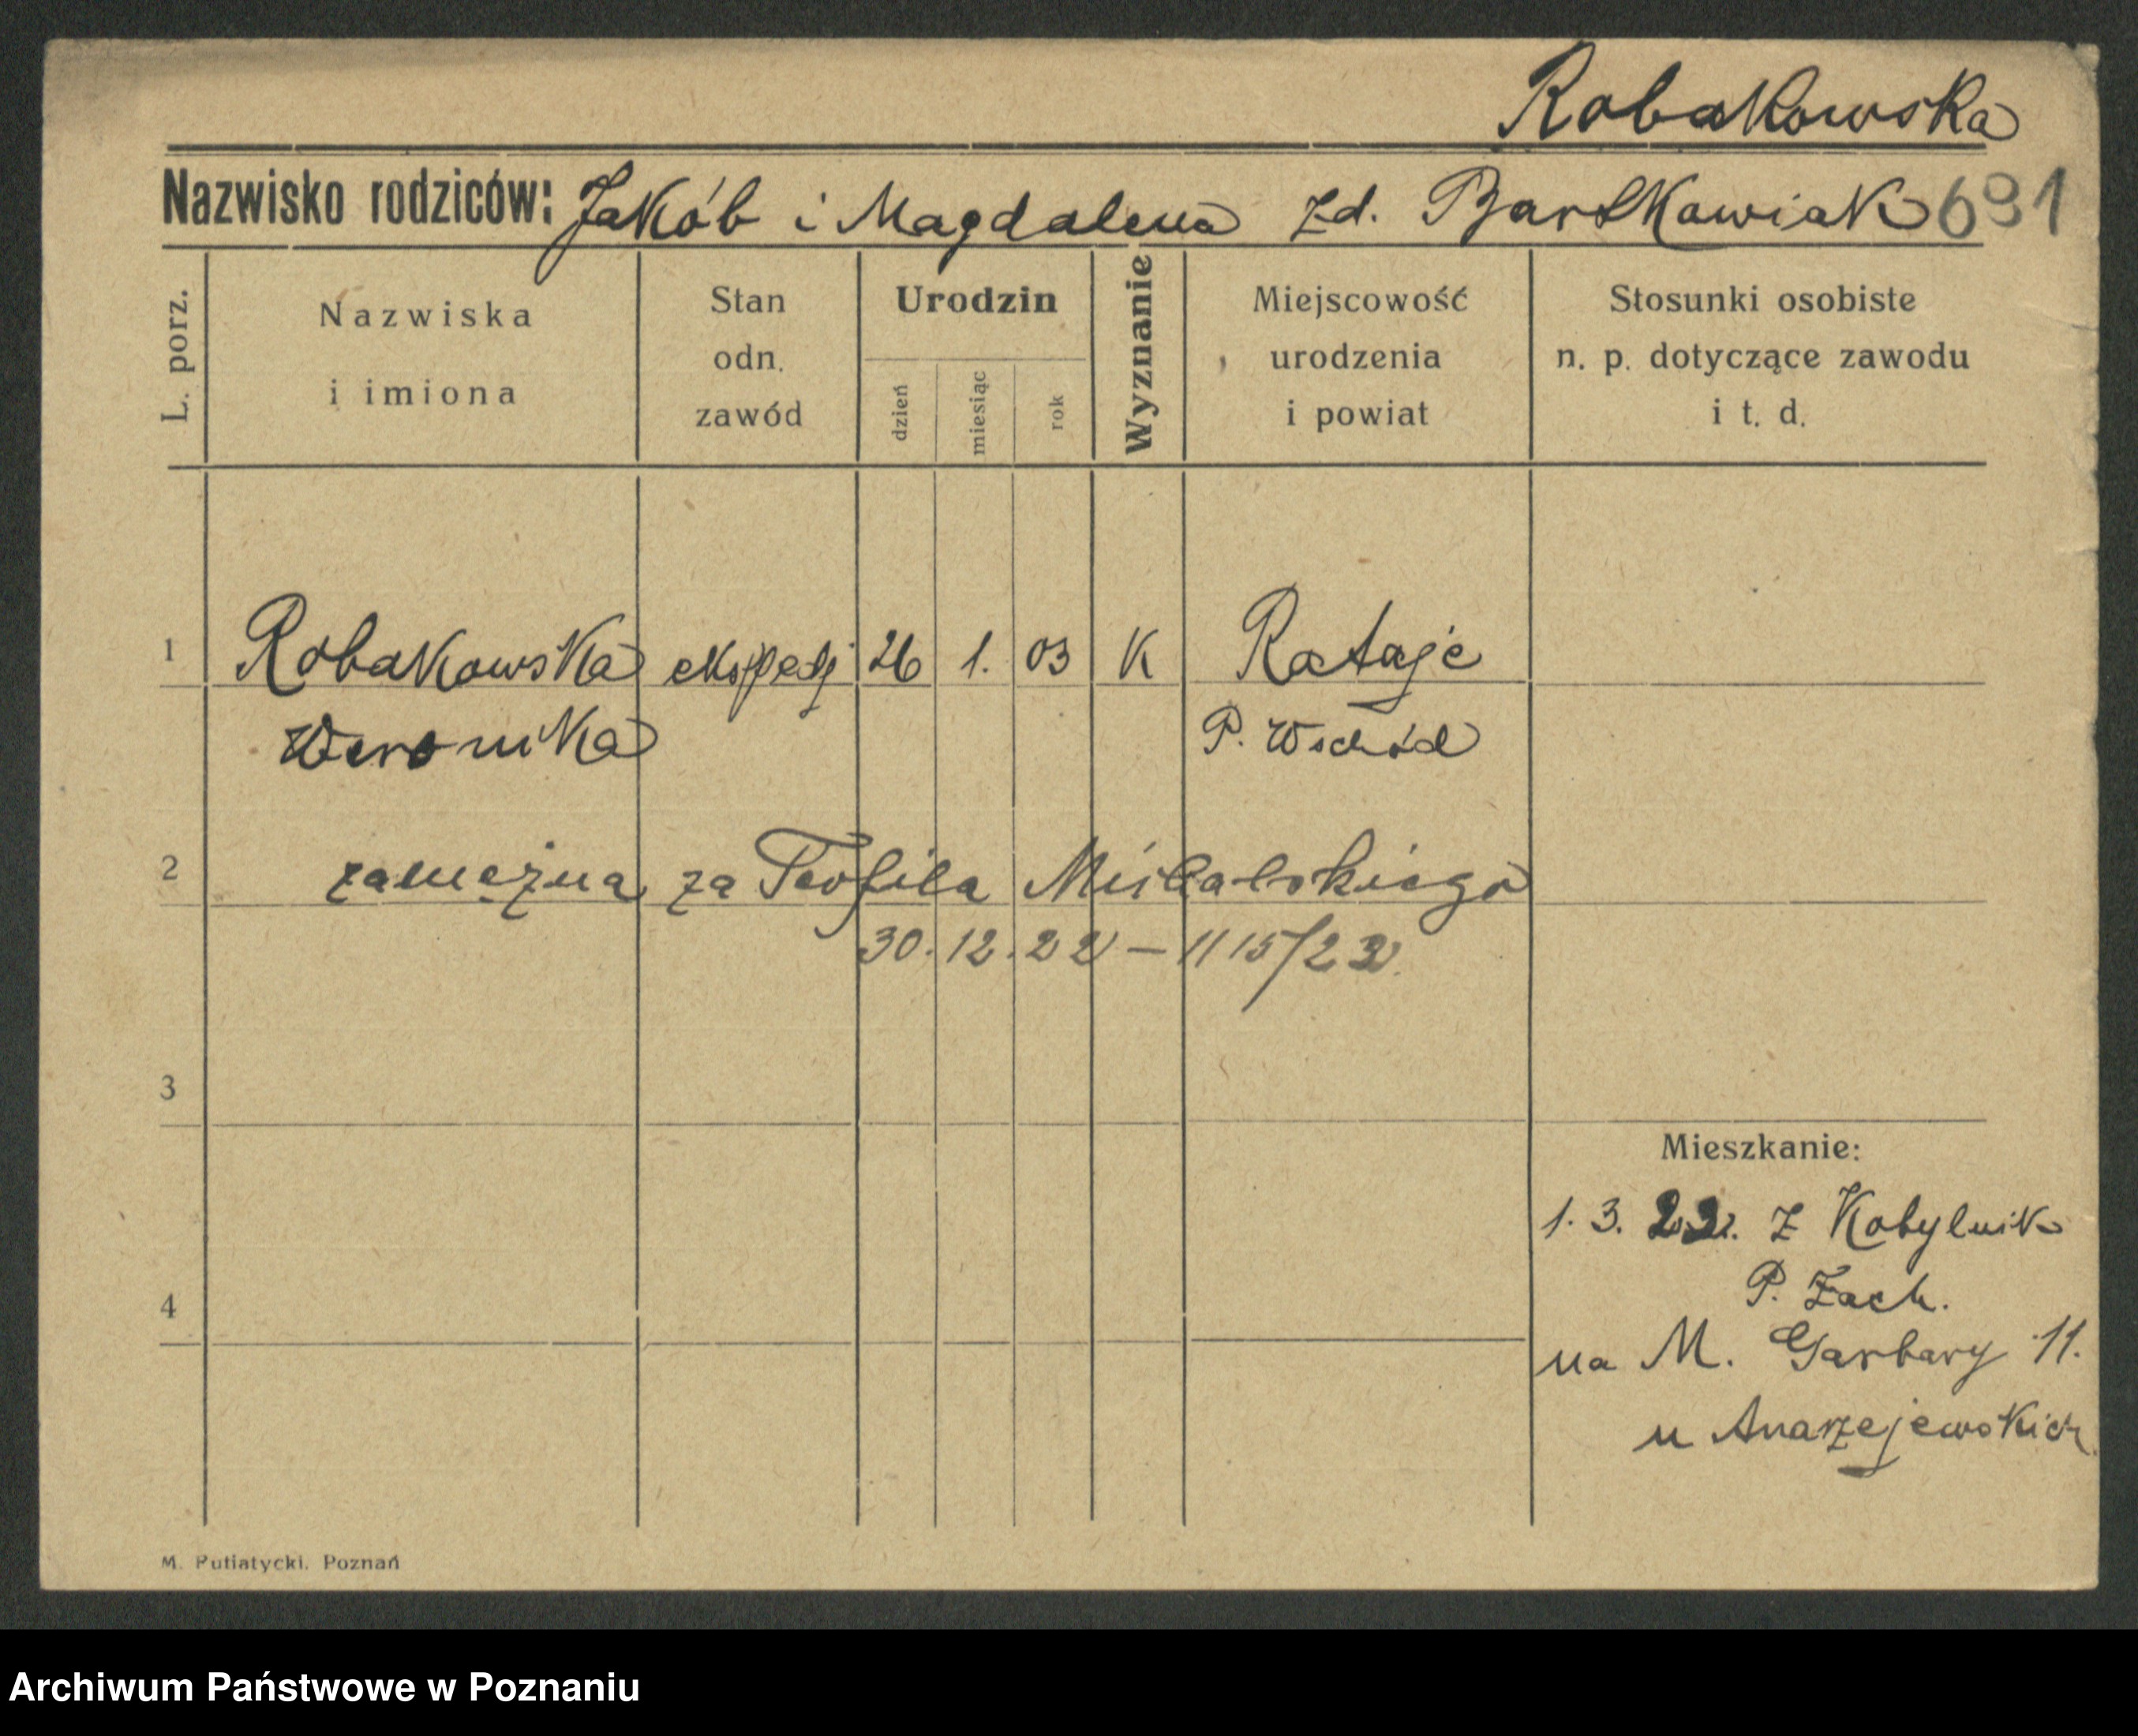 Robakowska
Nazwisko rodziców: Jakób i Magdalena zd. Bartkowiak 691
L. porz.
Nazwiska
i imiona
Stan
odn.
zawód
Urodzin
dzień
miesiąc
rok
Wyznanie
Miejscowość
urodzenia
i powiat
Stosunki osobiste
n. p. dotyczące zawodu
i t. d.
1 Robakowska ekspedj 26 1. 03 K Rataje
Weronika P. Wschód
2 zamężna za Teofila
30.12.22 – 1115/22.
3
Mieszkanie:
1. 3. 22. z Kobylnik
P. Zach.
4
na M. Garbary 11.
u Andrzejewskich
M. Putiatycki. Poznań
Archiwum Państwowe w Poznaniu